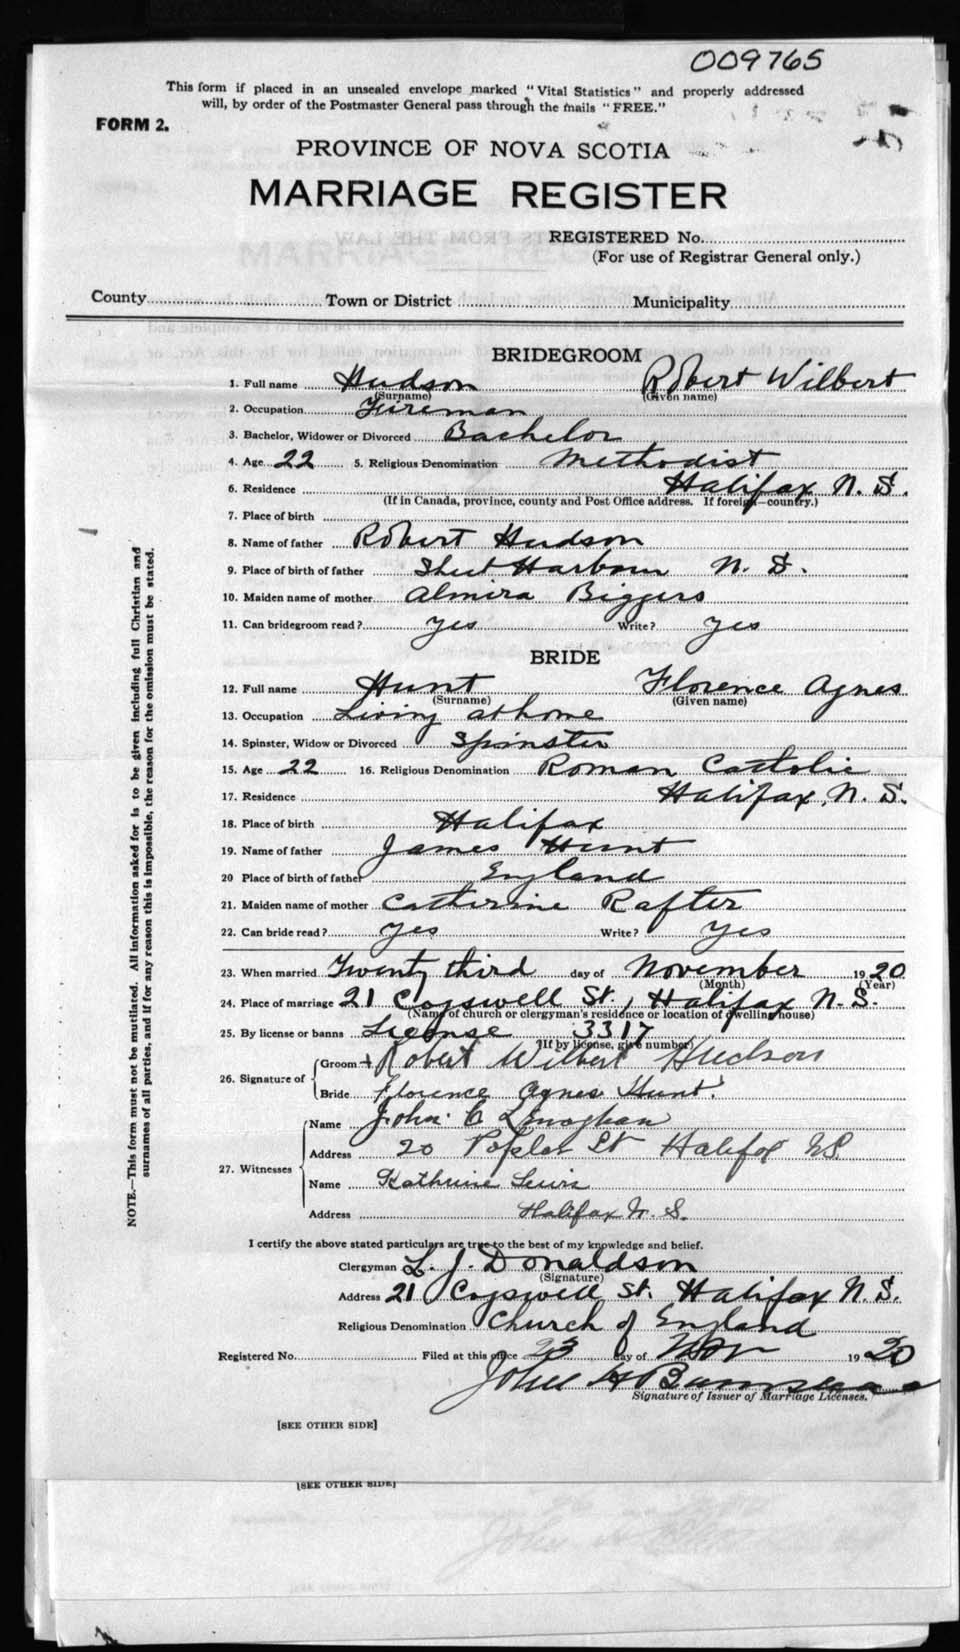 009765
This form if placed in an unsealed envelope marked "Vital Statistics" and properly addressed
will, by order of the Postmaster General pass through the mails "FREE."
FORM 2.
PROVINCE OF NOVA SCOTIA
MARRIAGE REGISTER
REGISTERED No.
(For use of Registrar General only.)
County Town or District Municipality
BRIDEGROOM
1. Full name Hudson Robert Wilbert
(Surname) (Given name)
2. Occupation Fireman
3. Bachelor, Widower or Divorced Bachelor
4. Age 22 5. Religious Denomination Methodist
6. Residence Halifax N. S.
(If in Canada, province, county and Post Office address. If foreign—country.)
7. Place of birth
8. Name of father Robert Hudson
9. Place of birth of father Sheet Harbour N. S.
10. Maiden name of mother Almira Biggers
11. Can bridegroom read? yes Write? yes
BRIDE
12. Full name Hunt Florence Agnes
(Surname) (Given name)
13. Occupation Living at home
14. Spinster, Widow or Divorced Spinster
15. Age 22 16. Religious Denomination Roman Catholic
17. Residence Halifax, N. S.
18. Place of birth Halifax
19. Name of father James Hunt
20 Place of birth of father England
21. Maiden name of mother Catherine Rafter
22. Can bride read? yes Write? yes
23. When married Twenty third day of November 1920
(Month) (Year)
24. Place of marriage 21 Cogswell St., Halifax N. S.
(Name of church or clergyman's residence or location of dwelling house)
25. By license or banns License 3317
(If by license, give number)
26. Signature of
Groom + Robert Wilbert Hudson
Bride Florence Agnes Hunt
27. Witnesses
Name John C Lenaghan
Address 20 Poplar St Halifax NS
Name Kathrine Lewis
Address Halifax N. S.
I certify the above stated particulars are true to the best of my knowledge and belief.
Clergyman L. J. Donaldson
(Signature)
Address 21 Cogswell St. Halifax N. S.
Religious Denomination Church of England
Registered No. Filed at this office 23 day of Nov 1920
John H
Signature of Issuer of Marriage Licenses.
[SEE OTHER SIDE]
[SEE OTHER SIDE]
NOTE.—This form must not be mutilated. All information asked for is to be given including full Christian and
surnames of all parties, and if for any reason this is impossible, the reason for the omission must be stated.